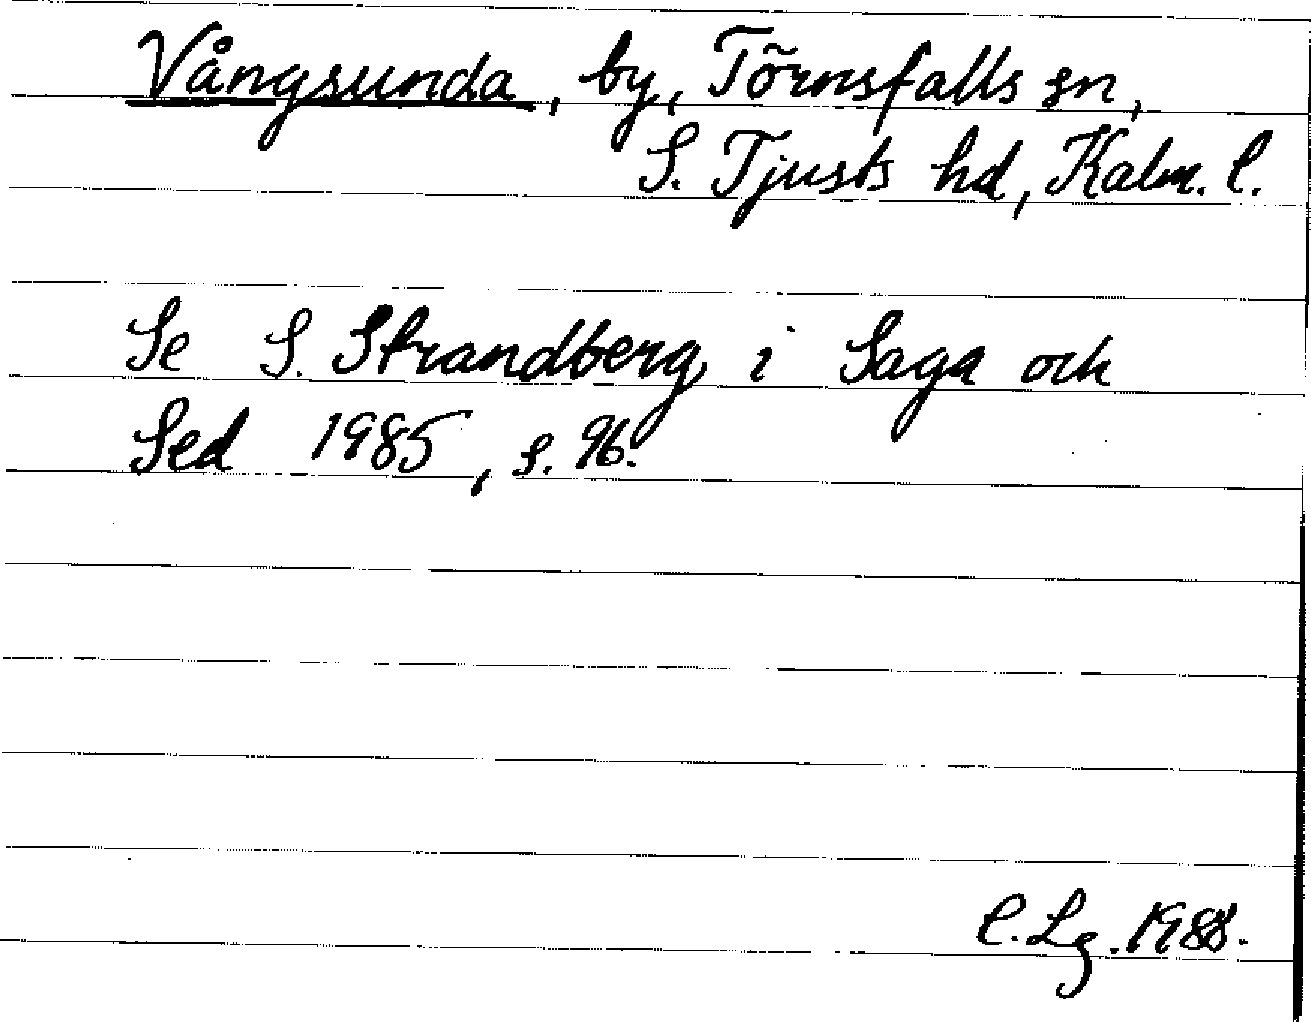 Vångsunda, by, Törnsfalls sn,
S. Tjusts hd, Kalm. l.
Se S. Strandberg i Saga och
Sed 1985, s. 96.
C. Lg. 1988.